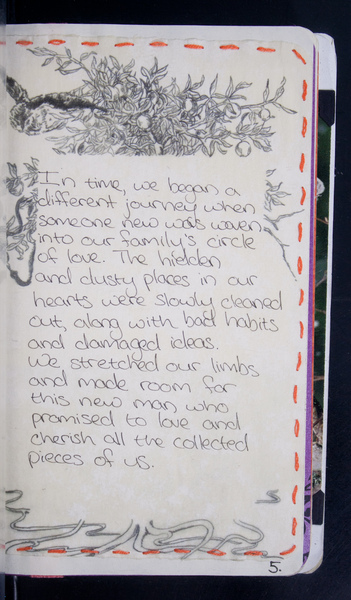 In time, we began a
different journey when
someone new was waven
into our family's circle
of love. The hidden
and dusty places in our
hearts were slowly cleaned
out, along with bad habits
and damaged ideas.
We stretched our limbs
and made room for
this new man who
promised to love and
cherish all the collected
pieces of us.
5.